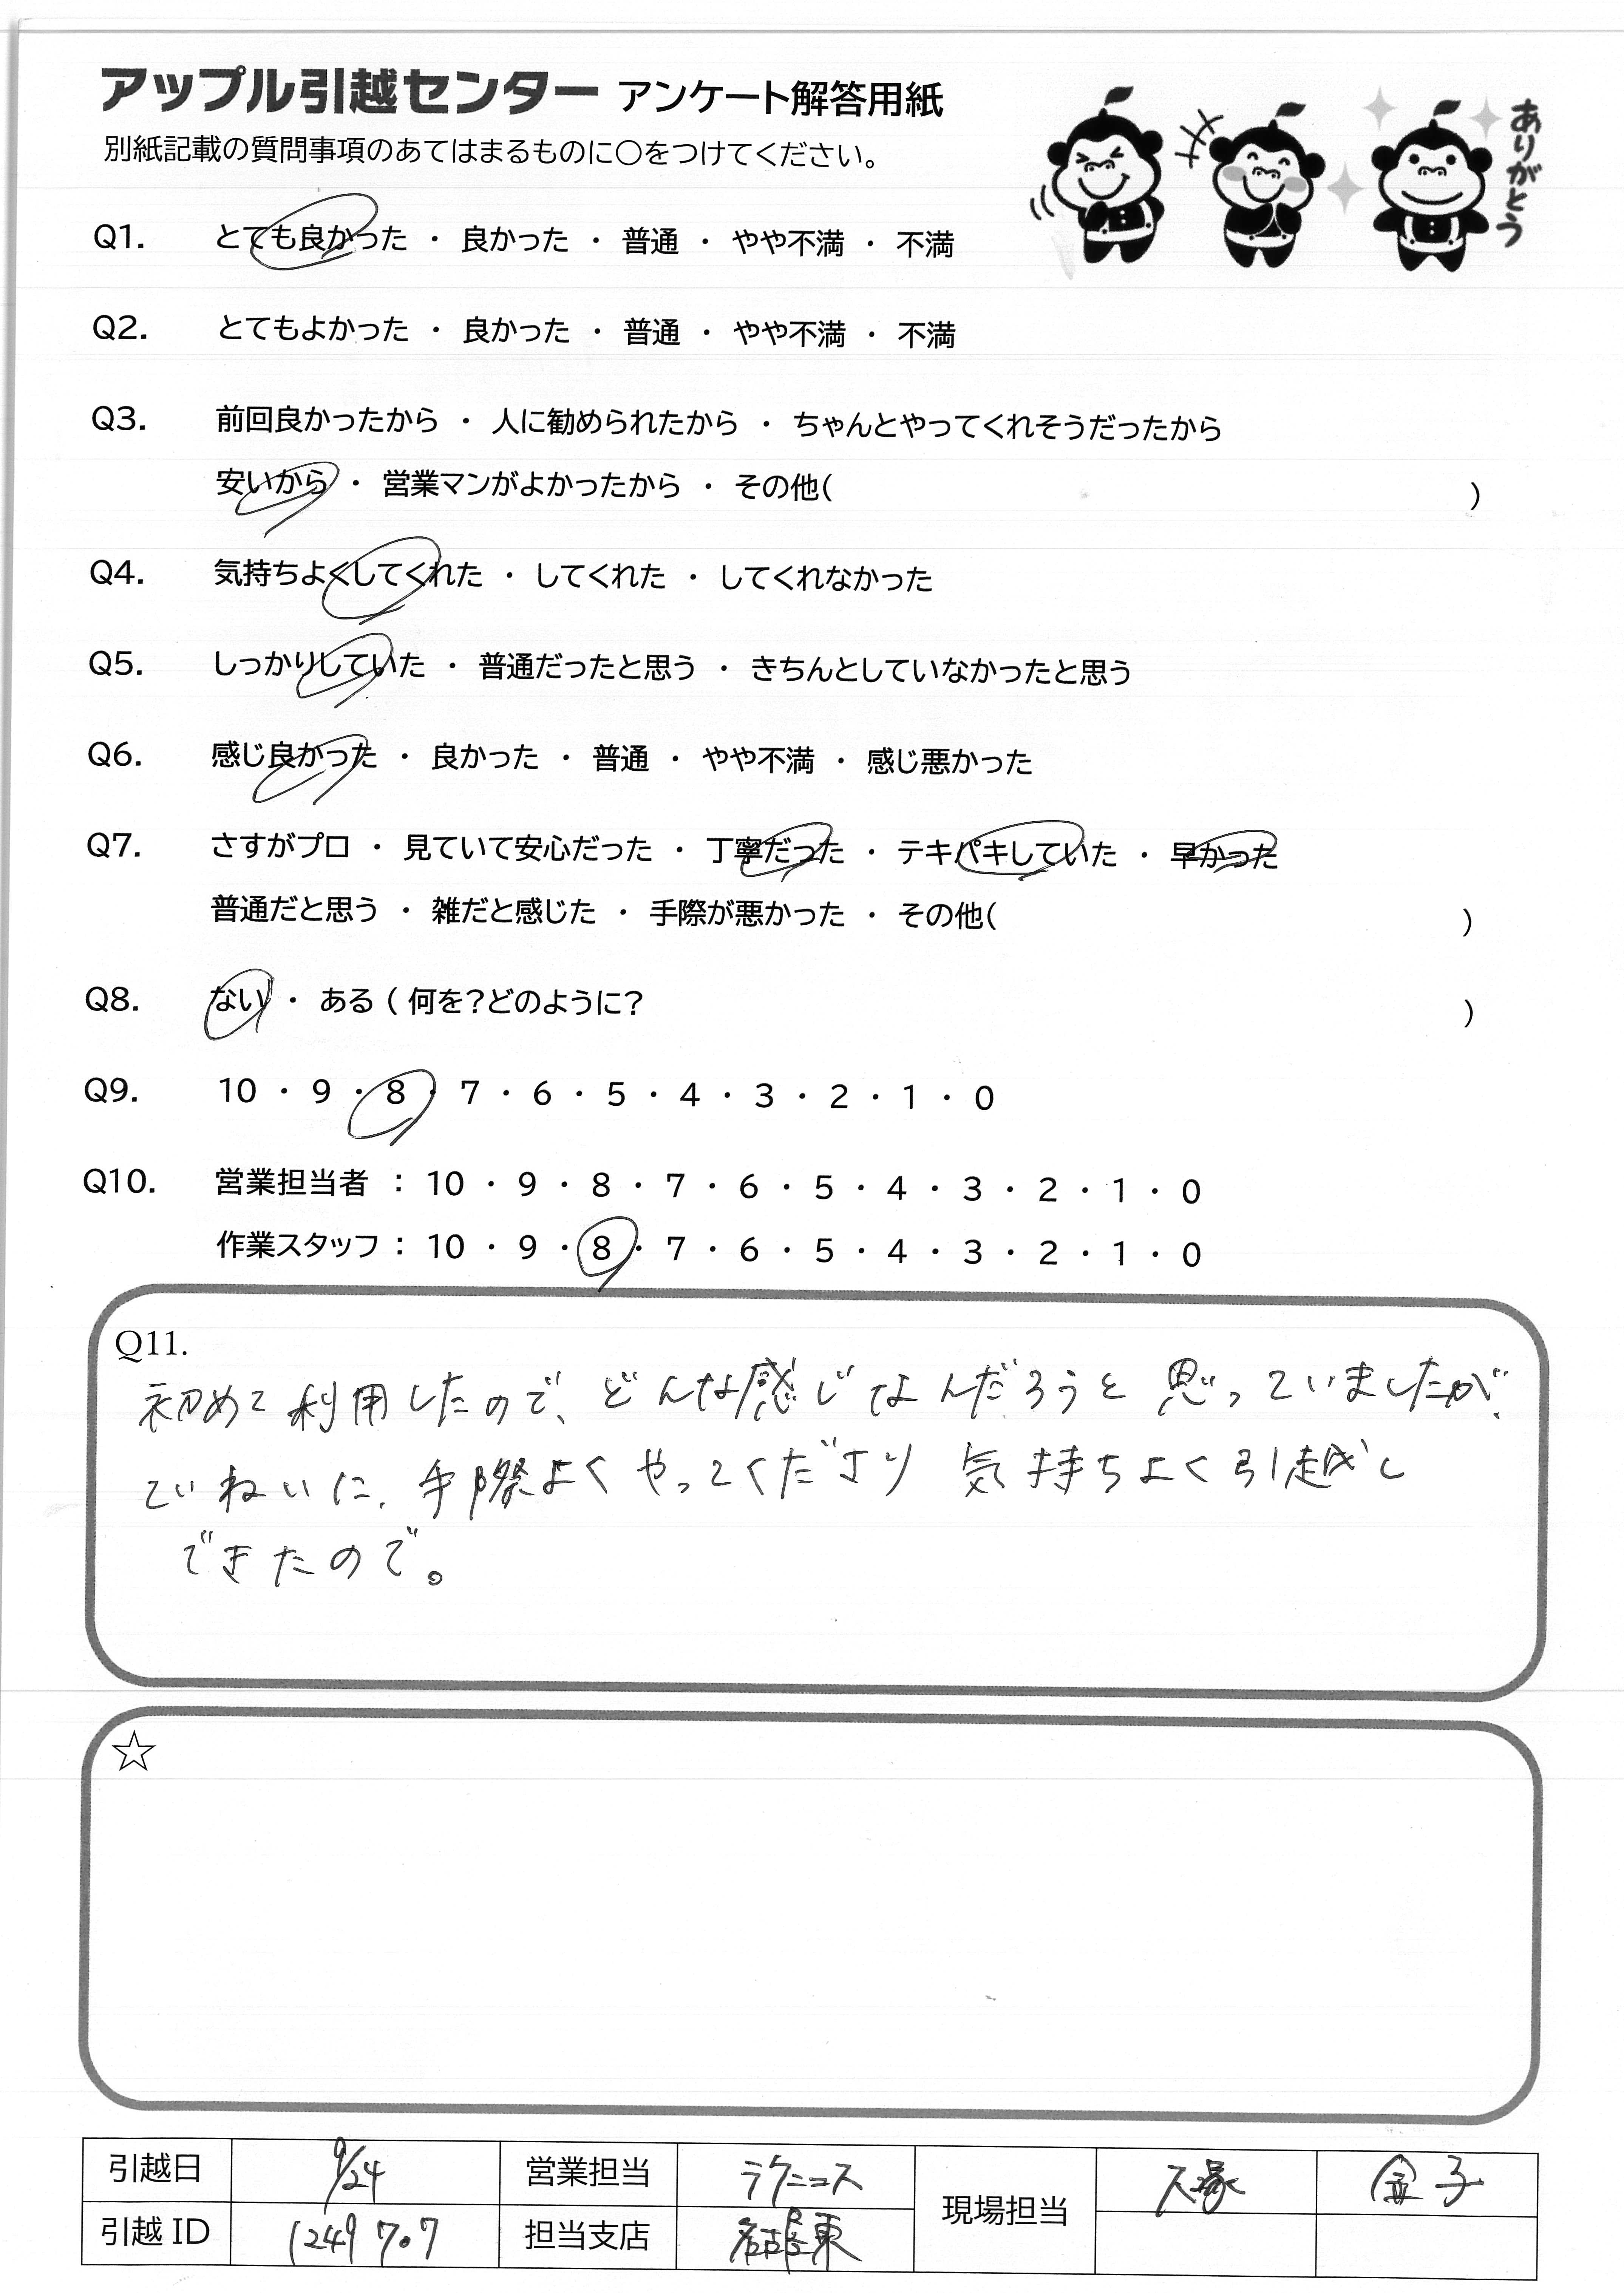 アップル引越センター アンケート解答用紙
別紙記載の質問事項のあてはまるものに〇をつけてください。
ありがとう
Q1. とても良かった ・ 良かった ・ 普通 ・ やや不満 ・ 不満
Q2. とてもよかった ・ 良かった ・ 普通 ・ やや不満 ・ 不満
Q3. 前回良かったから ・ 人に勧められたから ・ ちゃんとやってくれそうだったから
安いから ・ 営業マンがよかったから ・ その他( )
Q4. 気持ちよくしてくれた ・ してくれた ・ してくれなかった
Q5. しっかりしていた ・ 普通だったと思う ・ きちんとしていなかったと思う
Q6. 感じ良かった ・ 良かった ・ 普通 ・ やや不満 ・ 感じ悪かった
Q7. さすがプロ ・ 見ていて安心だった ・ 丁寧だった ・ テキパキしていた ・ 早かった
普通だと思う ・ 雑だと感じた ・ 手際が悪かった ・ その他( )
Q8. ない ・ ある ( 何を?どのように? )
Q9. 10 ・ 9 ・ 8 ・ 7 ・ 6 ・ 5 ・ 4 ・ 3 ・ 2 ・ 1 ・ 0
Q10. 営業担当者 : 10 ・ 9 ・ 8 ・ 7 ・ 6 ・ 5 ・ 4 ・ 3 ・ 2 ・ 1 ・ 0
作業スタッフ : 10 ・ 9 ・ 8 ・ 7 ・ 6 ・ 5 ・ 4 ・ 3 ・ 2 ・ 1 ・ 0
Q11.
初めて利用したので、どんな感じなんだろうと思っていましたが、
ていねいに、手際よくやってくださり 気持ちよく引越し
できたので。
☆
引越日 9/24 営業担当 ラクニコス 現場担当 大塚 金子
引越ID 1249707 担当支店 名古屋東